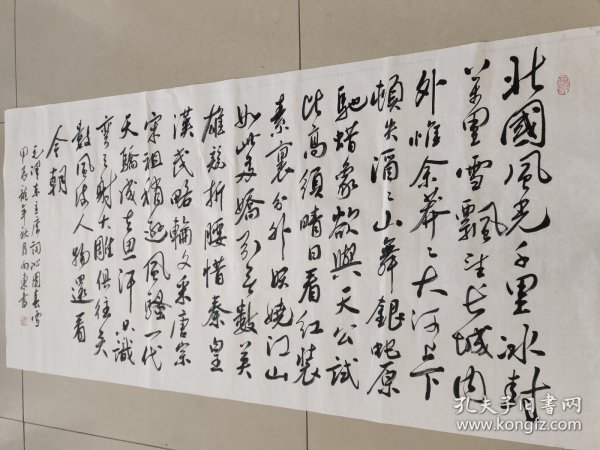 北國風光千里冰封
萬里雪飄望长城内
外惟余莽〻大河上下
頓失滔〻山舞銀蛇原
馳蜡象欲與天公試
比高須晴日看红装
素裹分外妖娆江山
如此多嬌引无數英
雄競折腰惜秦皇
漢武略輸文采唐宗
宋祖稍逊風騷一代
天驕成吉思汗只識
彎弓射大雕俱往矣
數風流人物還看
今朝
毛澤東主席詞沁園春雪
甲辰龍年秋月
孔夫子旧书网
www.kongfz.com